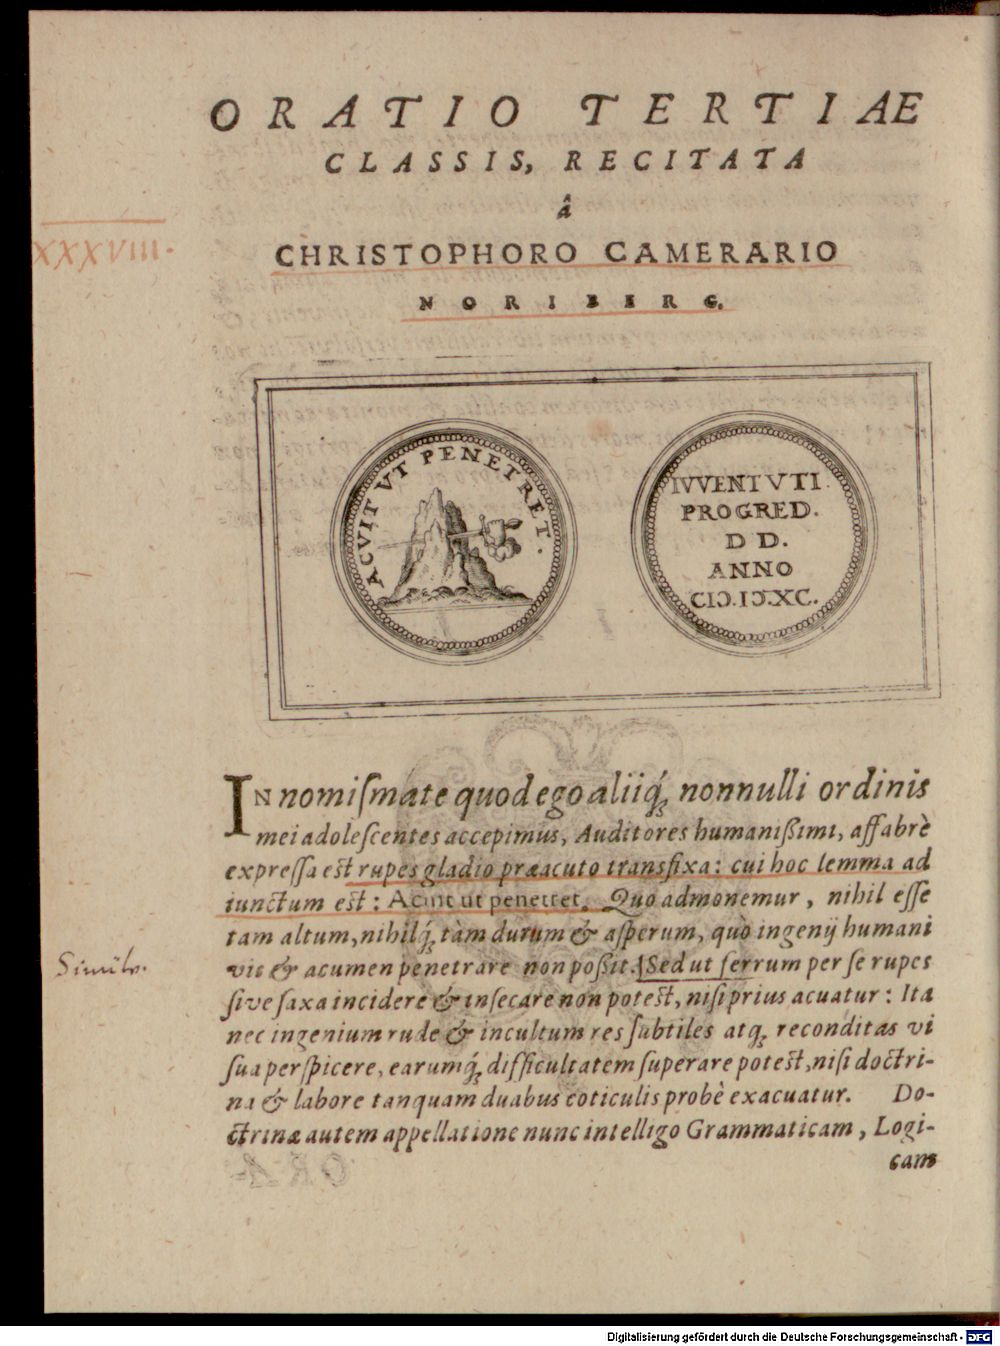 ORATIO TERTIAE
CLASSIS, RECITATA
â
CHRISTOPHORO CAMERARIO
NORIBERG.
XXXVIII.
ACVIT VT PENETRET.
IVVENTVTI
PROGRED.
D D.
ANNO
CIↃ.IↃ.XC.
IN nomiſmate quod ego aliiq́; nonnulli ordinis
mei adoleſcentes accepimus, Auditores humanißimi, affabrè
expreſſa est rupes gladio præacuto transfixa: cui hoc lemma ad
iunctum est: Acuit ut penetret. Quo admonemur, nihil eſſe
tam altum, nihilq́; tàm durum & aſperum, quò ingenij humani
vis & acumen penetrare non poßit. Sed ut ferrum per ſe rupes
ſive ſaxa incidere & inſecare non potest, niſi prius acuatur: Ita
nec ingenium rude & incultum res ſubtiles atq; reconditas vi
ſua perſpicere, earumq́; difficultatem ſuperare potest, niſi doctri-
na & labore tanquam duabus coticulis probè exacuatur. Do-
ctrinæ autem appellatione nunc intelligo Grammaticam, Logi-
cam
Digitalisierung gefördert durch die Deutsche Forschungsgemeinschaft - DFG